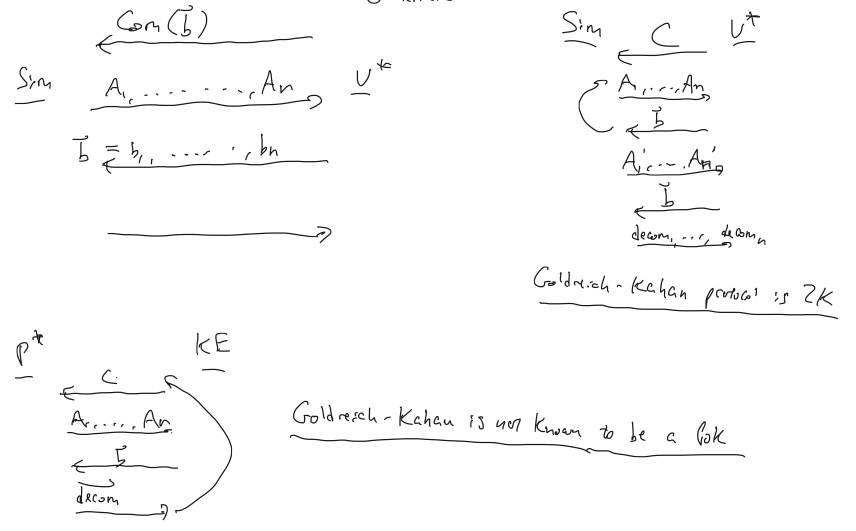 Com(b⃗)
Sim
A₁, . . . . . . . ., Aₙ
V*
b⃗ = b₁, . . . . . ., bₙ
Sim
C
V*
A₁, . . . , Aₙ
b⃗
A₁', . . . . Aₙ'
b⃗
decom₁, . . . , decomₙ
Goldreich-Kahan protocol is ZK
P*
KE
C
A₁, . . . . , Aₙ
b⃗
decom
Goldreich-Kahan is not known to be a PoK